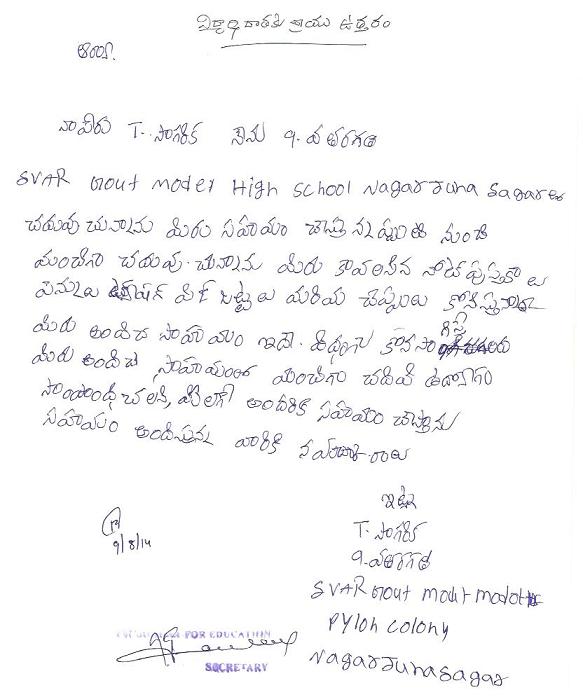 విద్యార్థి దాతకు వ్రాయు ఉత్తరం
ఆర్యా.
నా పేరు T. సాగరిక నేను 9.వ తరగతి
SVAR Gout Model High School Nagar Juna Sagar లో
చదువు చున్నాను మిరు సహాయం చేస్తు న్నప్పటి నుంచి
మంచిగా చదువు. చున్నాను మిరు కావలసిన నోట్ పుస్తకా లు
పెన్నులు ట్యూషన్ ఫీజ్ బట్టలు మరియ చెప్పులు
మిరు అందిచె సాహాయం ఇదె. విధంగా కొనసాగిస్తే
మిరు అందిచె సాహాయంతో మంచిగా చదివి ఉద్యోగం
సాంపాందిచలని, మిలాగే అందరికి సహాయం చేస్తాను
సహాయం అందిస్తున్న వారికి
9/8/14
ఇట్లు
T. సాగరిక
9.వతరగతి
SVAR Gout
Pyloh colony
Nagar Juna sagar
FOR EDUCATION
SECRETARY